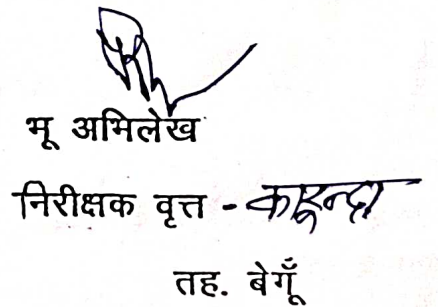 भू अभिलेख
निरीक्षक वृत्त - कारून्दा
तह. बेगूँ